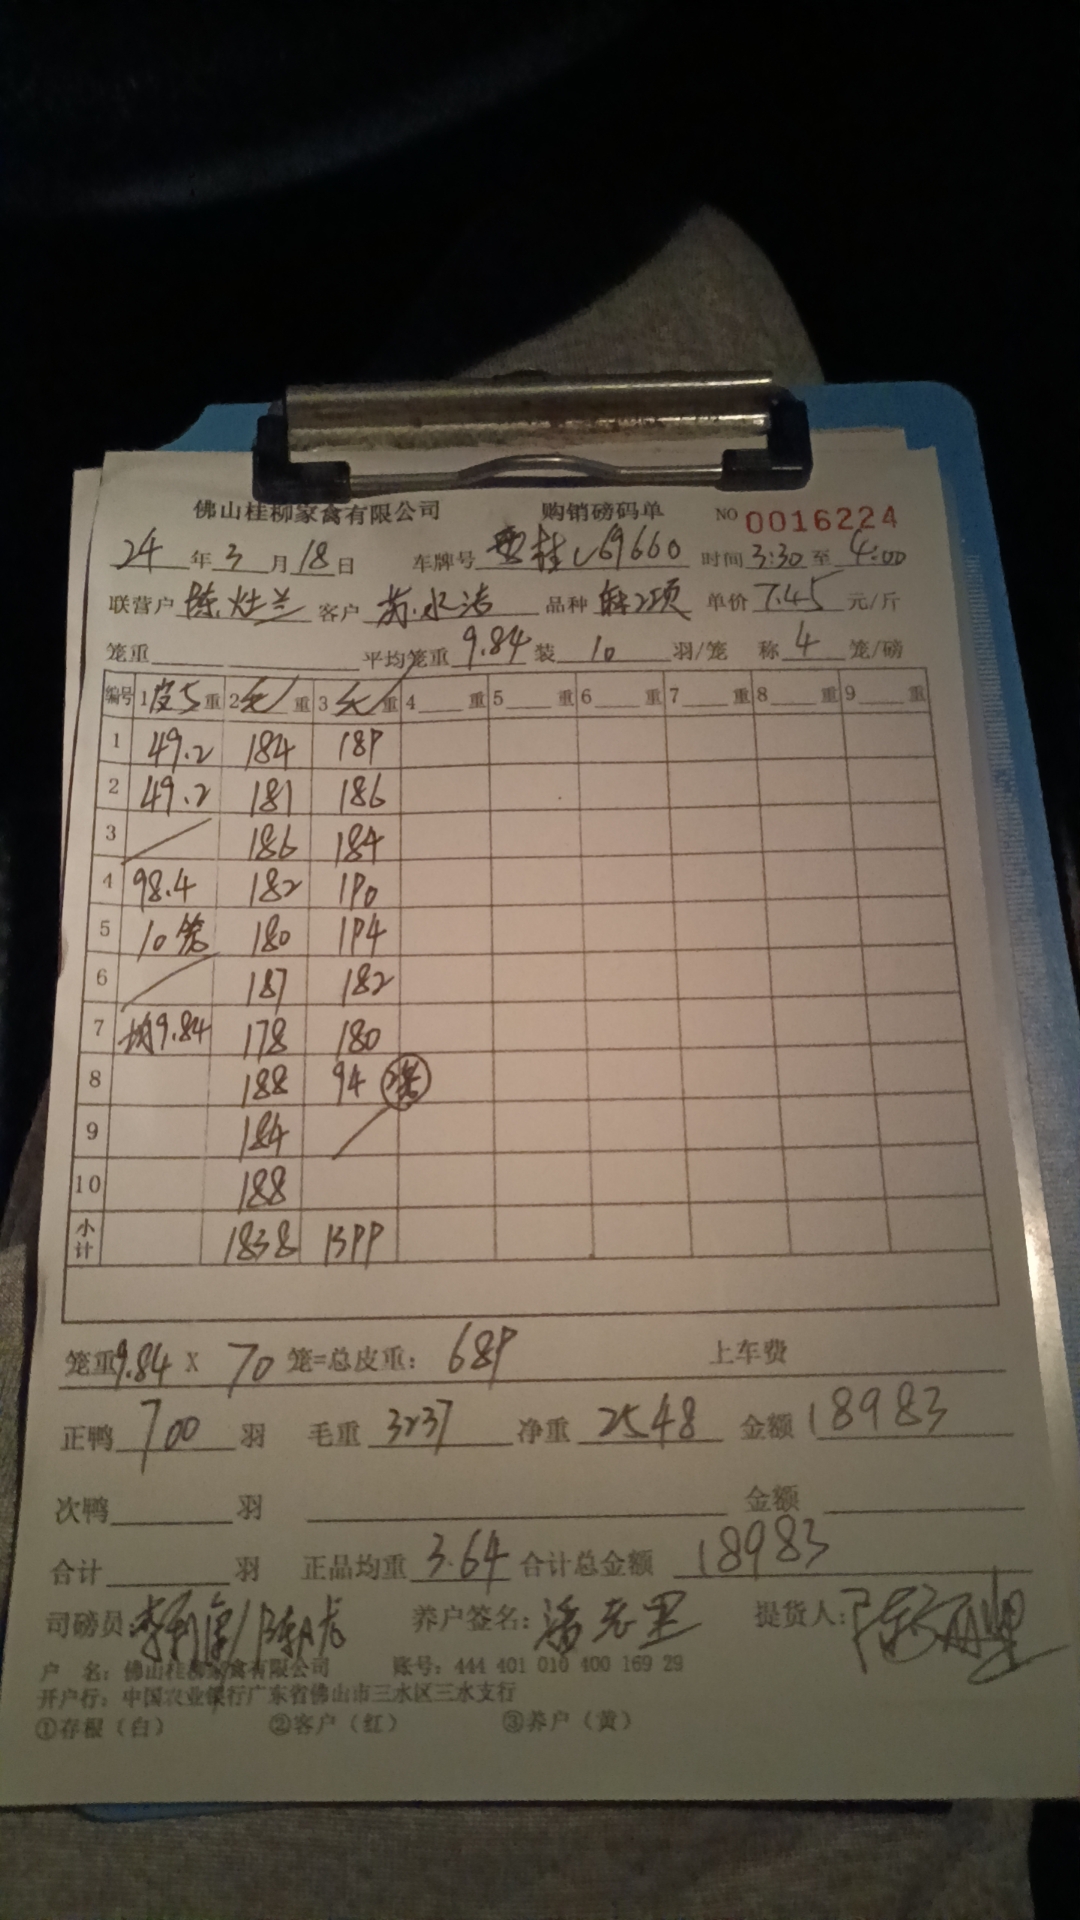 佛山桂柳家禽有限公司 购销磅码单 NO 0016224
24年3月18日 车牌号 桂C69660 时间3:30至4:00
联营户 陈灶兰 客户 苏水洁 品种 单价7.45元/斤
笼重 平均笼重9.84 装10羽/笼 称4笼/磅
编号 1皮5重 2毛重 3毛重 4重 5重 6重 7重 8重 9重
1 49.2 184 189
2 49.2 181 186
3 186 184
4 98.4 182 190
5 10笼 180 194
6 187 182
7 均9.84 178 180
8 188 94 2笼
9 184
10 188
小计 1838 1399
笼重9.84X70笼=总皮重:689 上车费
正鸭700羽 毛重3237 净重2548 金额18983
次鸭 羽 金额
合计 羽 正品均重3.64 合计总金额18983
司磅员: 养户签名:潘志里 提货人:
户 名:佛山桂柳家禽有限公司 账号:444 401 010 400 169 29
开户行:中国农业银行广东省佛山市三水区三水支行
①存根(白) ②客户(红) ③养户(黄)